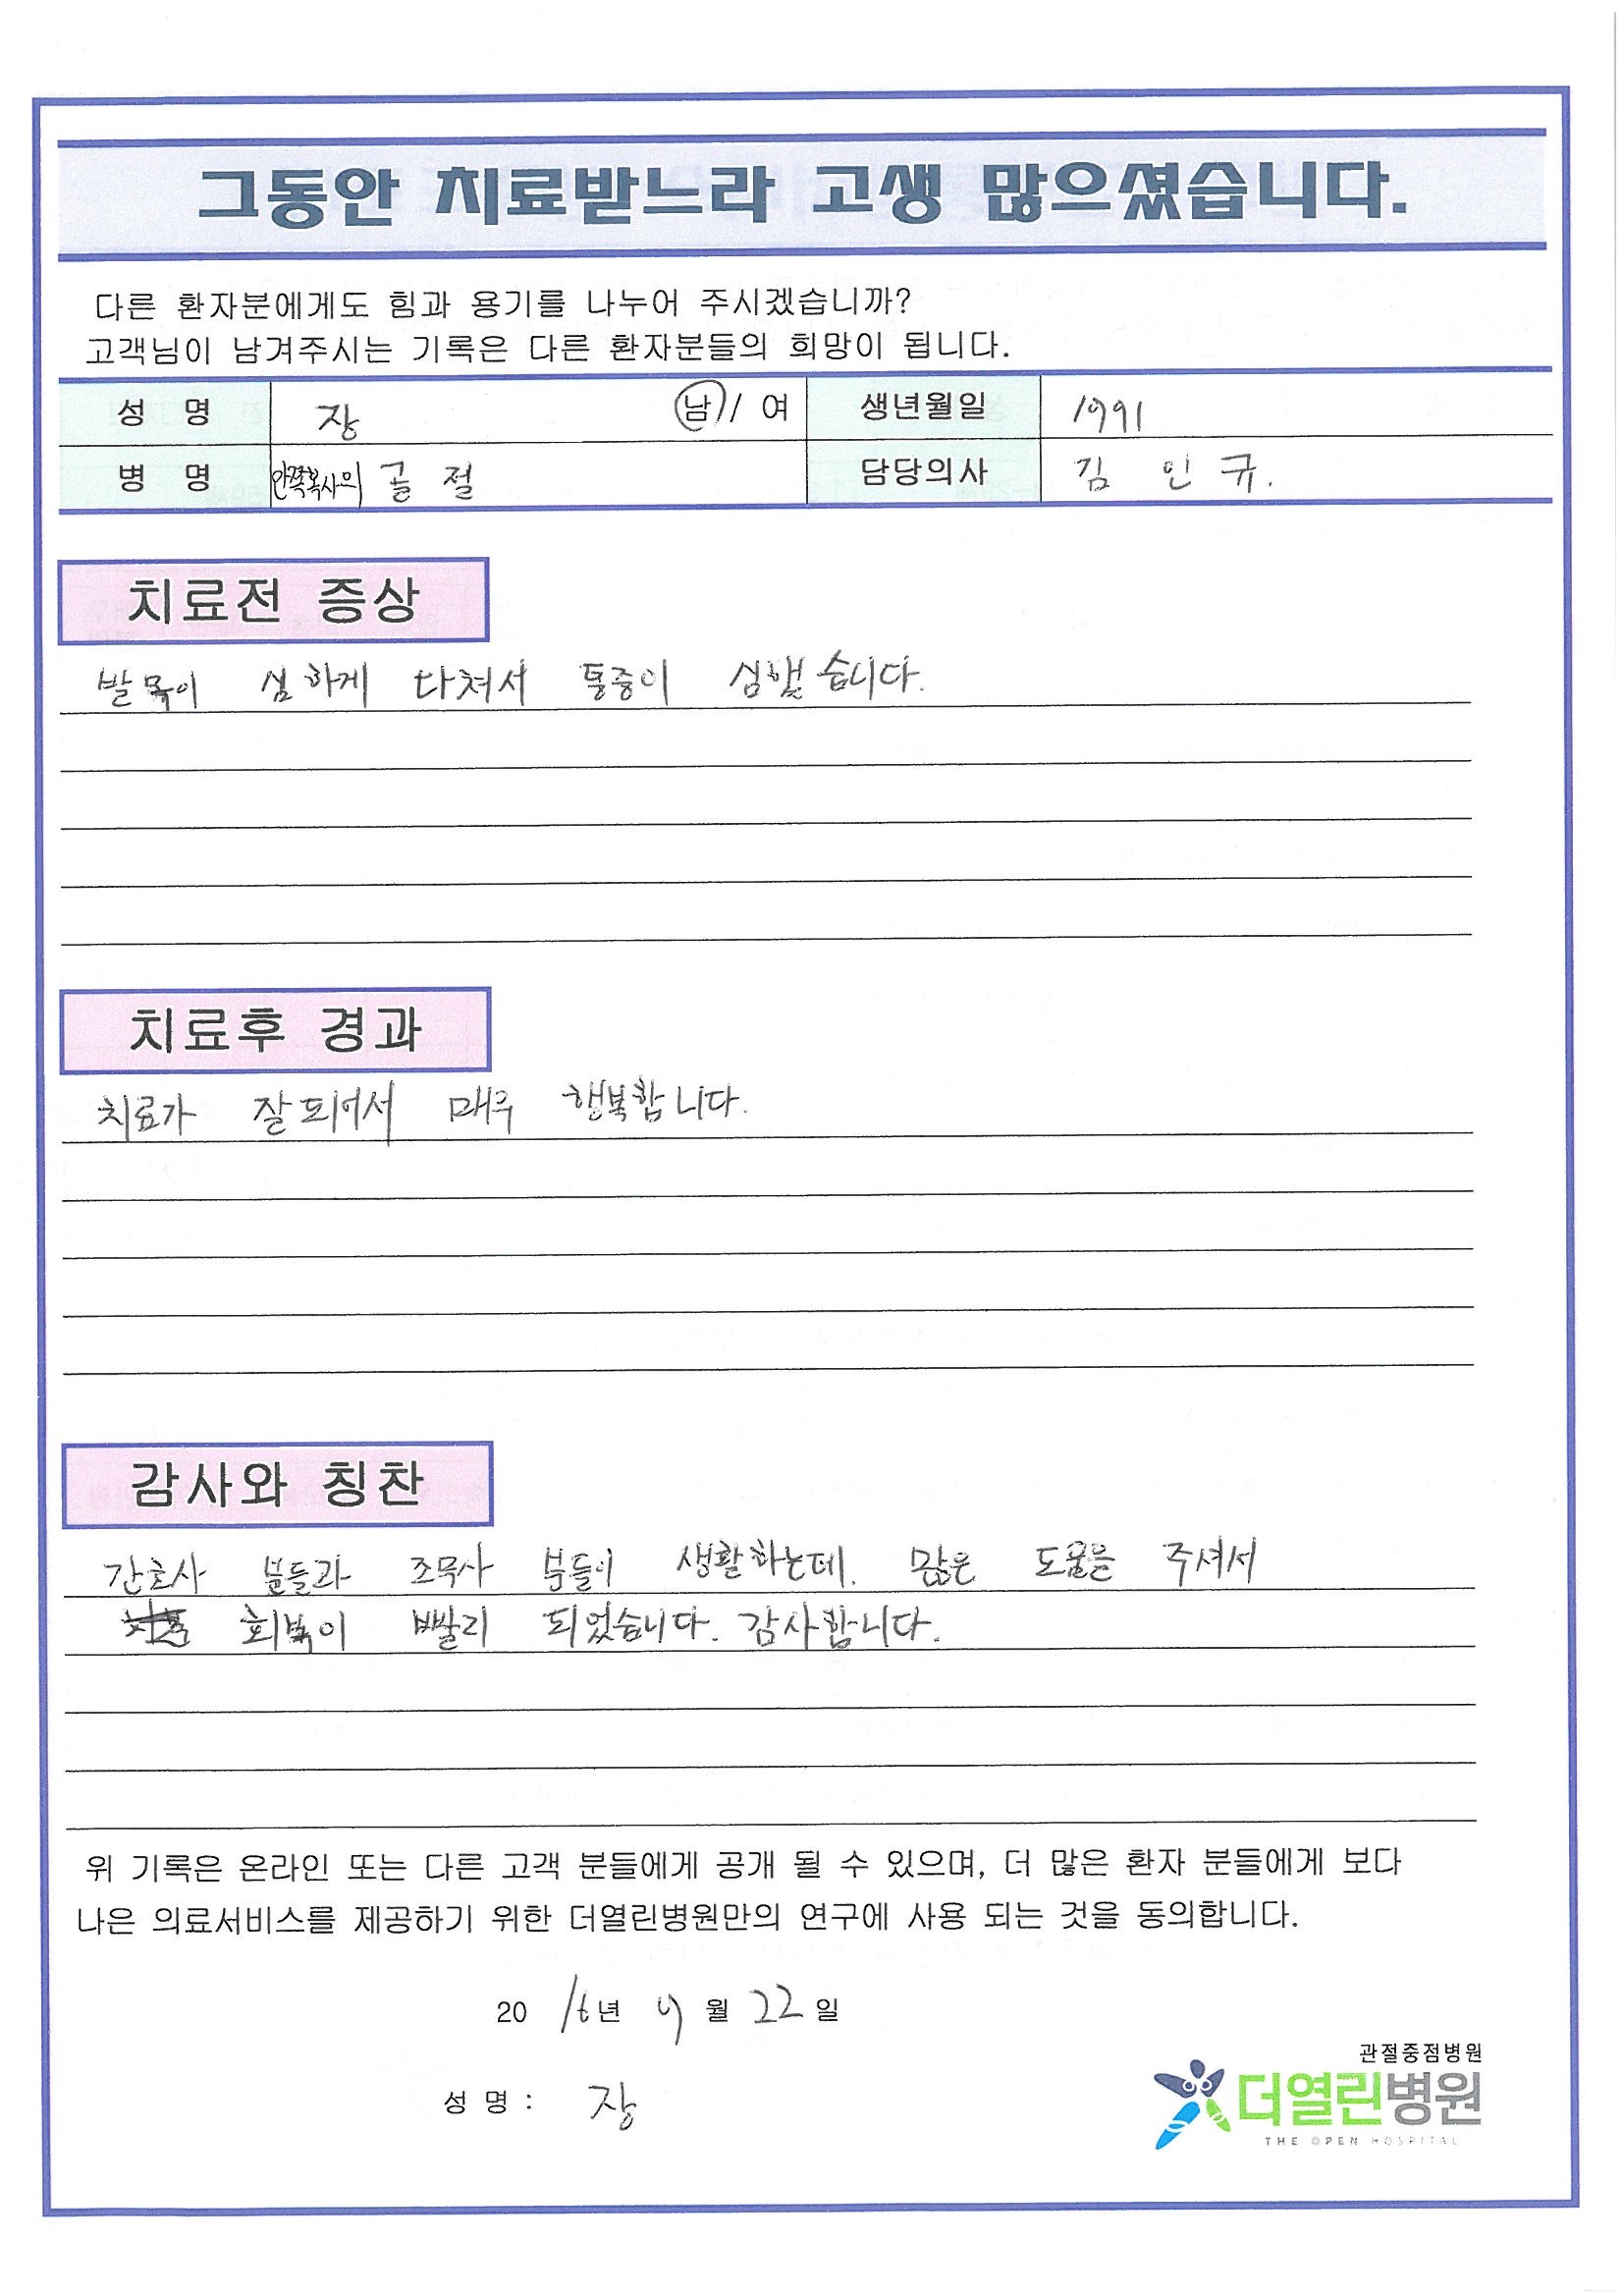 그동안 치료받느라 고생 많으셨습니다.
다른 환자분에게도 힘과 용기를 나누어 주시겠습니까?
고객님이 남겨주시는 기록은 다른 환자분들의 희망이 됩니다.
성 명 장 남 / 여 생년월일 1991
병 명 안쪽복사의 골절 담당의사 김 인 규.
치료전 증상
발목이 심하게 다쳐서 통증이 심했습니다.
치료후 경과
치료가 잘되어서 매우 행복합니다.
감사와 칭찬
간호사 분들과 조무사 분들이 생활하는데. 많은 도움을 주셔서
회복이 빨리 되었습니다. 감사합니다.
위 기록은 온라인 또는 다른 고객 분들에게 공개 될 수 있으며, 더 많은 환자 분들에게 보다
나은 의료서비스를 제공하기 위한 더열린병원만의 연구에 사용 되는 것을 동의합니다.
20 16년 9월 22일
성 명 : 장
관절중점병원
더열린병원
THE OPEN HOSPITAL